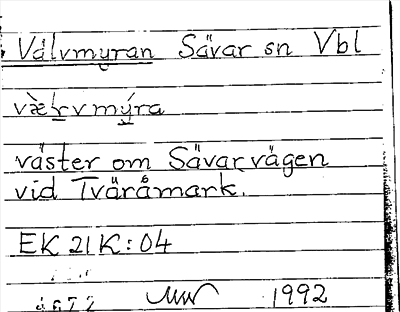 Välvmyran Sävar sn Vbl
væ̀ḷvmýra
väster om Sävarvägen
vid Tväråmark.
EK 21K:04
1992